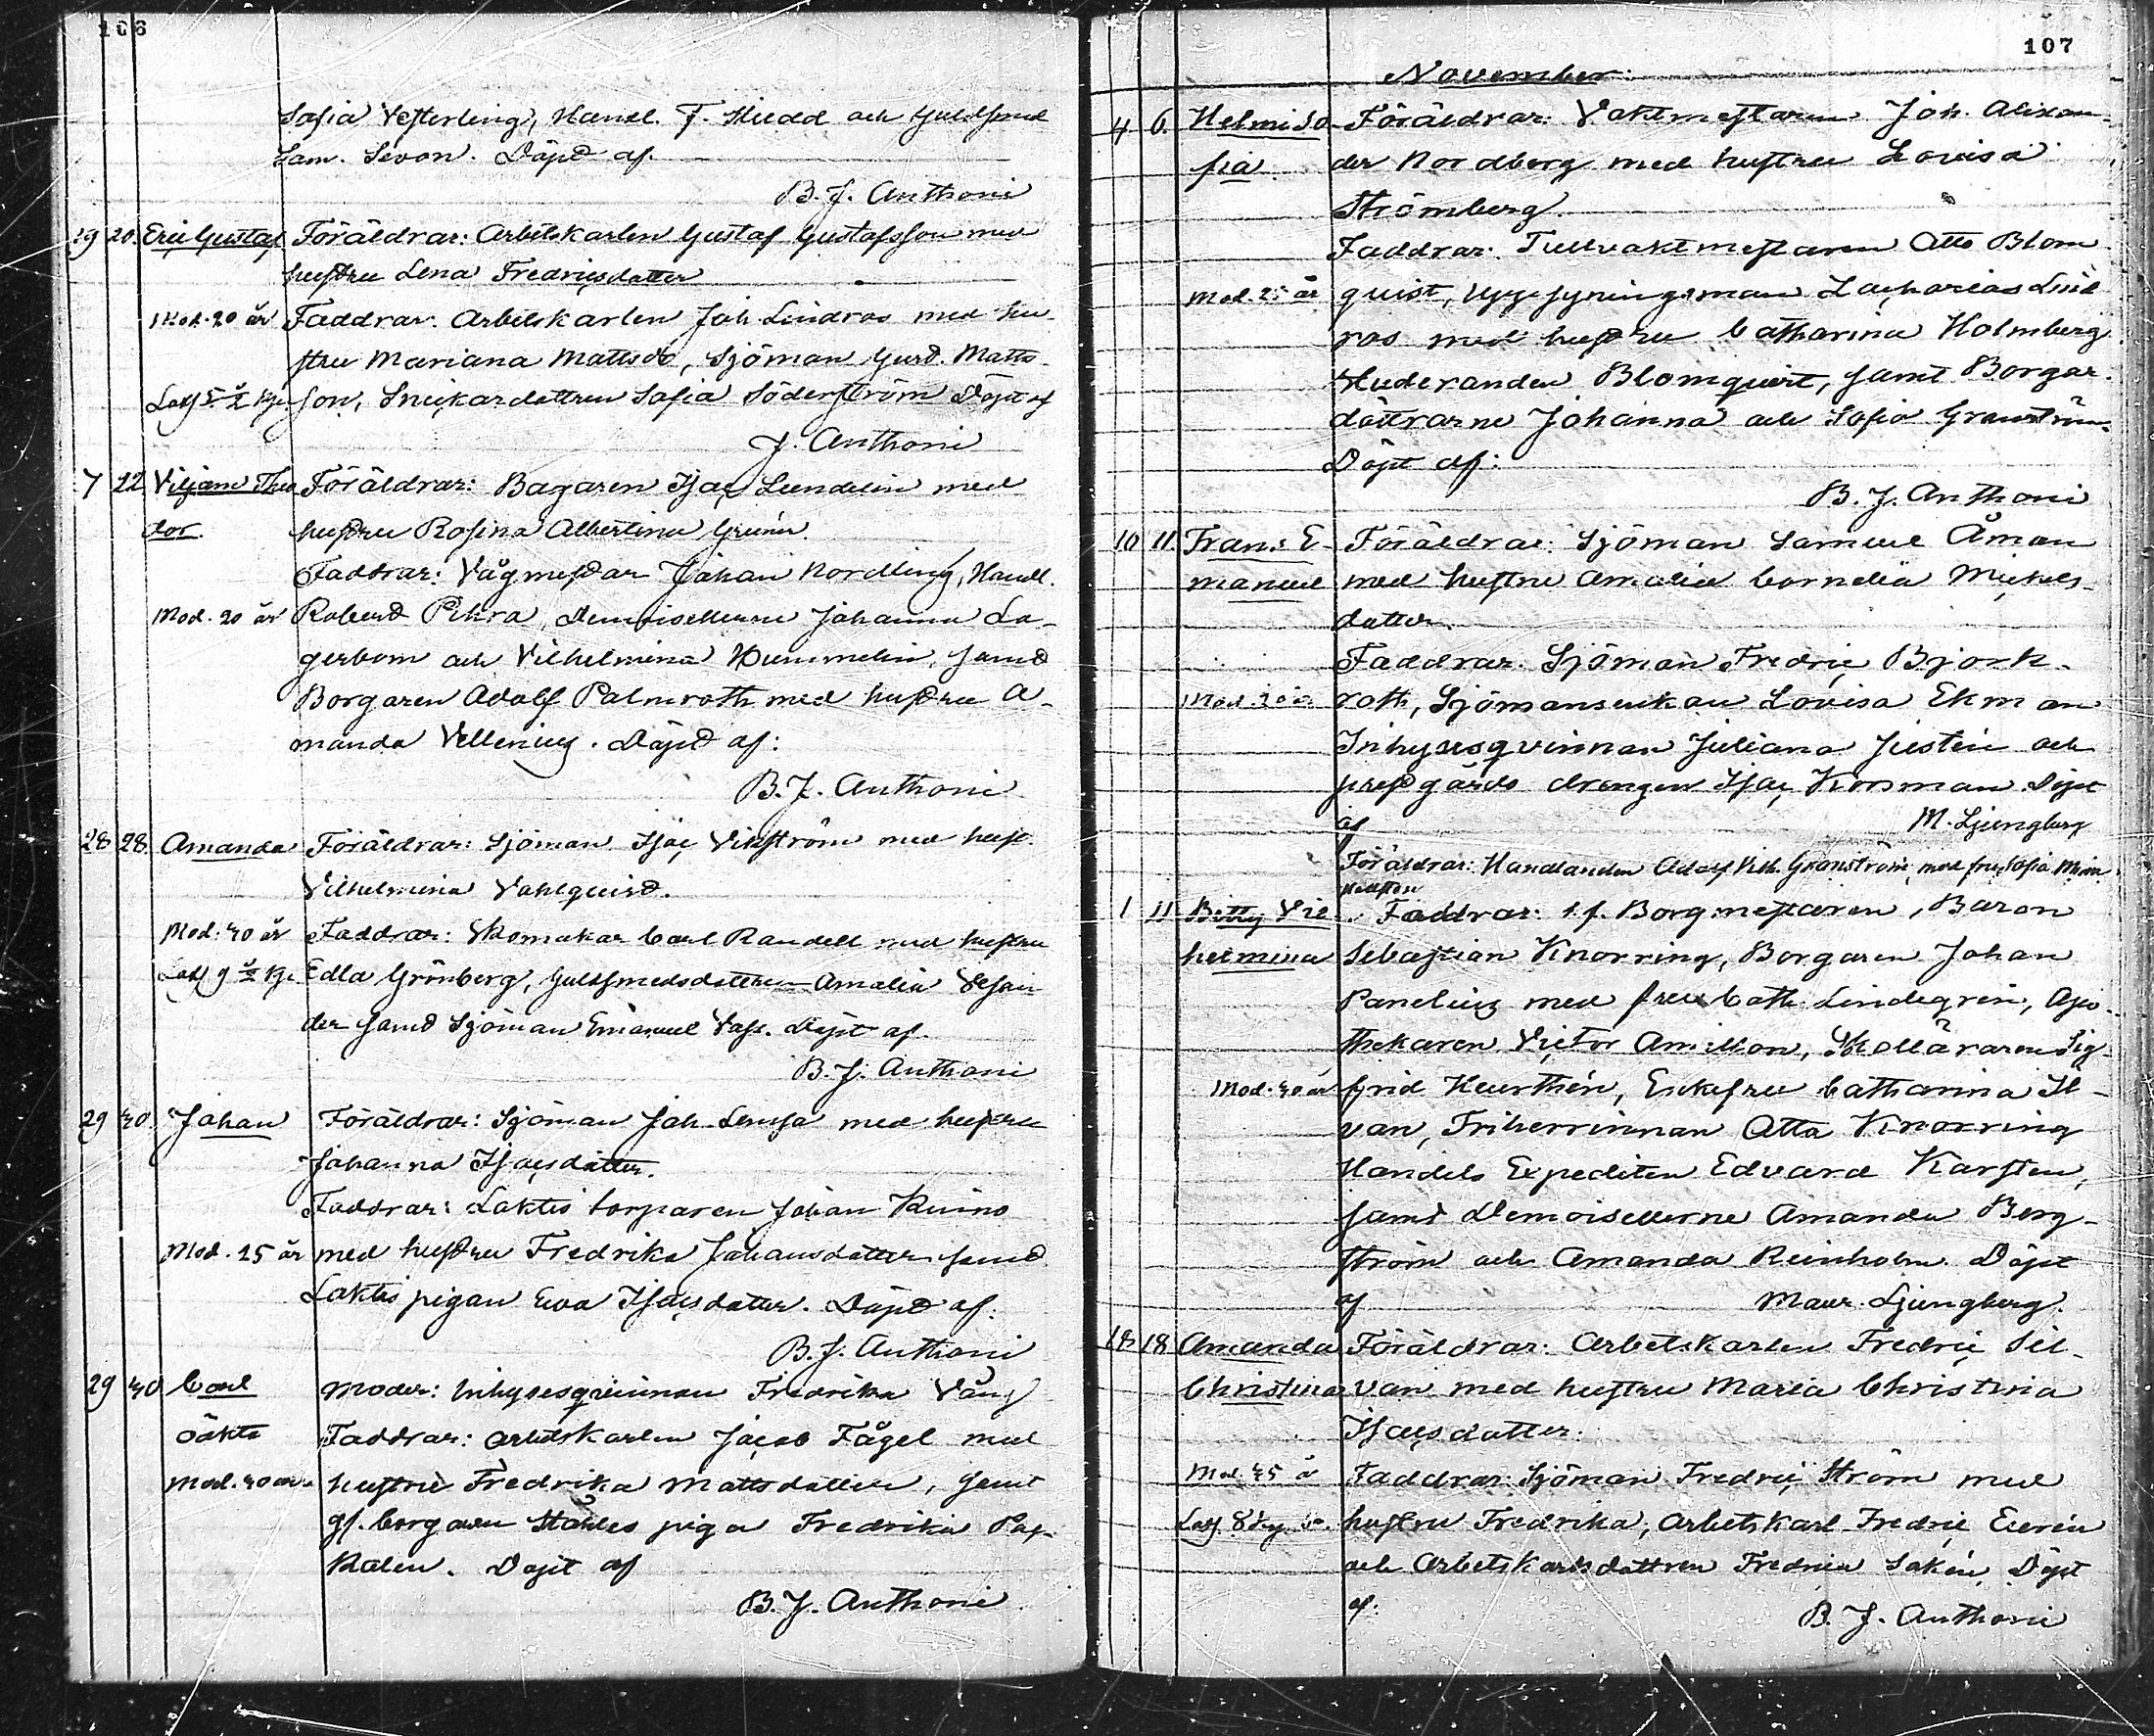 106
Sofia Vesterling, Handl. F. Hiedd och Guldsmed
Sam. Levon. Döpt af.
B. J. Anthoni
19 20. Eric Gustaf Föräldrar: Arbetskarlen Gustaf Gustafsson med
hustru Lena Fredricsdotter
Mod. 20 år Faddrar: Arbetskarlen Joh. Lindros med hu-
stru Mariana Mattsdr, Sjöman Gust. Matts-
son, Snickardottren Sofia Söderström Döpt af
J. Anthoni
7 22. Viljam Theo Föräldrar: Bagaren Isac Lundelin med
dor. hustru Rosina Albertina Grunér.
Faddrar: Vågmestar Johan Nordling, Handl.
Mod. 20 år Robert Pihra, Demoisellerne Johanna La-
gerbom och Vilhelmina Hummelin, samt
Borgaren Adolf Palmroth med hustru A-
manda Vellenius. Döpt af:
B. J. Anthoni
28 28. Amanda Föräldrar: Sjöman Isac Vikström med hust.
Vilhelmina Vahlquist.
Mod. 40 år Faddrar: Skomakar Carl Randell med hustru
Edla Grönberg, Guldsmedsdottren Amalia
der samt Sjöman Emanuel Vass. Döpt af.
B. J. Anthoni
29 30. Johan Föräldrar: Sjöman Joh. Lensa med hustru
Johanna Isacsdotter.
Faddrar: Laktis torparen Johan Kuino
Mod. 25 år med hustru Fredrika Johansdotter samt
Laktis pigan Eva Isacsdotter. Döpt af.
B. J. Anthoni
29 30 Carl Moder: Inhysesqvinnan Fredrika Vång
oäkta Faddrar: Arbetskarlen Jacob Fågel med
Mod. 40 år. hustru Fredrika Mattsdotter, samt
gf. borgaren Ståhles piga Fredrika Pas-
kalen. Döpt af
B. J. Anthoni
107
November:
4 6. Helmi So- Föräldrar: Vaktmestaren Joh. Alexan-
fia der Nordberg med hustru Lovisa
Strömberg.
Faddrar: Tullvaktmestaren Otto Blom
Mod. 25 år quist, Uppsyningsman Zacharias Lind
ros med hustru Catharina Holmberg
Studeranden Blomquist, samt Borgar-
döttrarne Johanna och Sofia Granström.
Döpt af:
B. J. Anthoni
10 11. Frans E- Föräldrar: Sjöman Samuel Åman
manuel med hustru Amalia Cornelia Mickels-
dotter.
Faddrar: Sjöman Fredric Björk-
roth, Sjömansenkan Lovisa Ekman
Inhysesqvinnan Juliana Justin och
prestgårds drengen Isac Korsman Döpt
af M. Ljungberg
Föräldrar: Handlanden Adolf Vilh. Granström, med fru Sofia
1 11 Betty Vil Faddrar: t.f. Borgmestaren, Baron
helmina Sebastian Knorring, Borgaren Johan
Panelius med fru Cath. Lindegrén, Apo-
thekaren Victor Amillon, Skolläraren Sig-
Mod. 40 år frid Keurthén, Enkefru Catharina Il-
van, Friherrinnan Otta Knorring
Handels Expediten Edvard Karsten,
samt Demoisellerne Amanda Berg-
ström och Amanda Reinholm. Döpt
af Maur. Ljungberg.
18 18 Amanda Föräldrar: Arbetskarlen Fredric Sil-
Christina van med hustru Maria Christina
Isacsdotter.
Mod. 35 år Faddrar: Sjöman Fredric Ström med
hustru Fredrika, Arbetskarl Fredric Everén
och Arbetskarlsdottren Fredrica Sakén, Döpt
af.
B. J. Anthoni